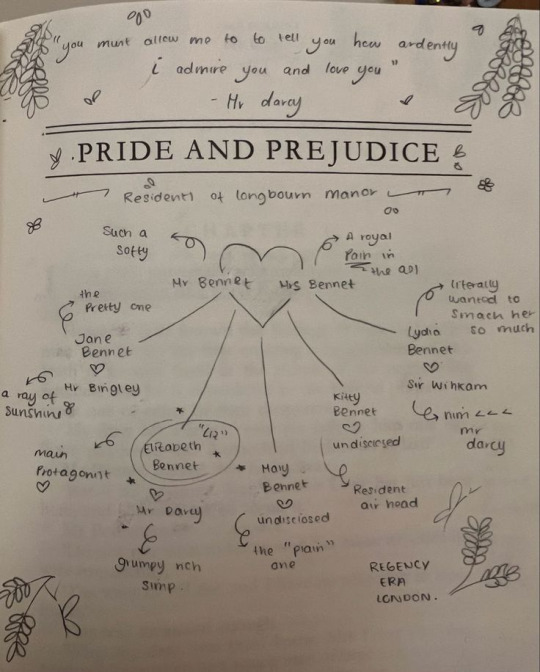 "you must allow me to to tell you how ardently
i admire you and love you"
- Mr darcy
PRIDE AND PREJUDICE
Residents of longbourn manor
Such a
softy
A royal
Pain in
the
Mr Bennet
Mrs Bennet
the
Pretty one
Jane
Bennet
Mr Bingley
a ray of
sunshine
literally
wanted to
smack her
so much
Lydia
Bennet
Sir Wihkam
him <<<
mr
darcy
main
Protagonist
"Liz"
Elizabeth
Bennet
Mr Darcy
grumpy rich
simp.
Mary
Bennet
undisclosed
the "plain"
one
Kitty
Bennet
undisclosed
Resident
air head
REGENCY
ERA
LONDON.